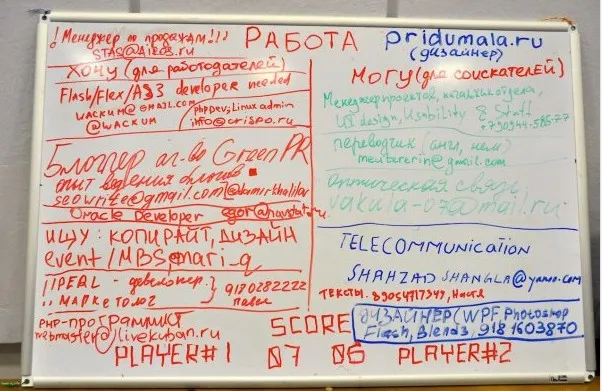 ! Менеджер по продажам!!!
STAS@AIEOS.ru
РАБОТА
pridumala.ru
(дизайнер)
Хочу (для работодателей)
Flash/Flex/AS3 developer needed
wackum@gmail.com
@WACKUM
PHPDev; Linux admin
info@crispo.ru
Блоггер
GreenPR
опыт ведения блогов
seowrite@gmail.com
Oracle Developer
ИЩУ: КОПИРАЙТ, ДИЗАЙН
event/MBS, mari_q
девелопер
МАРКЕТОЛОГ
9180282222
PHP-программист
webmaster@livekuban.ru
МОГУ (для соискателей)
Менеджер проектов, начальник отдела,
UI design, Usability & Staff
переводчик (англ, нем)
оптическая связь,
vakula-07@mail.ru
TELECOMMUNICATION
SHAHZAD SHANGLA@yahoo.com
ТЕКСТЫ. 89054717349, Настя
ДИЗАЙНЕР (WPF, Photoshop
Flash, Blend3, 9181603870
SCORE
PLAYER#1 07 06 PLAYER#2